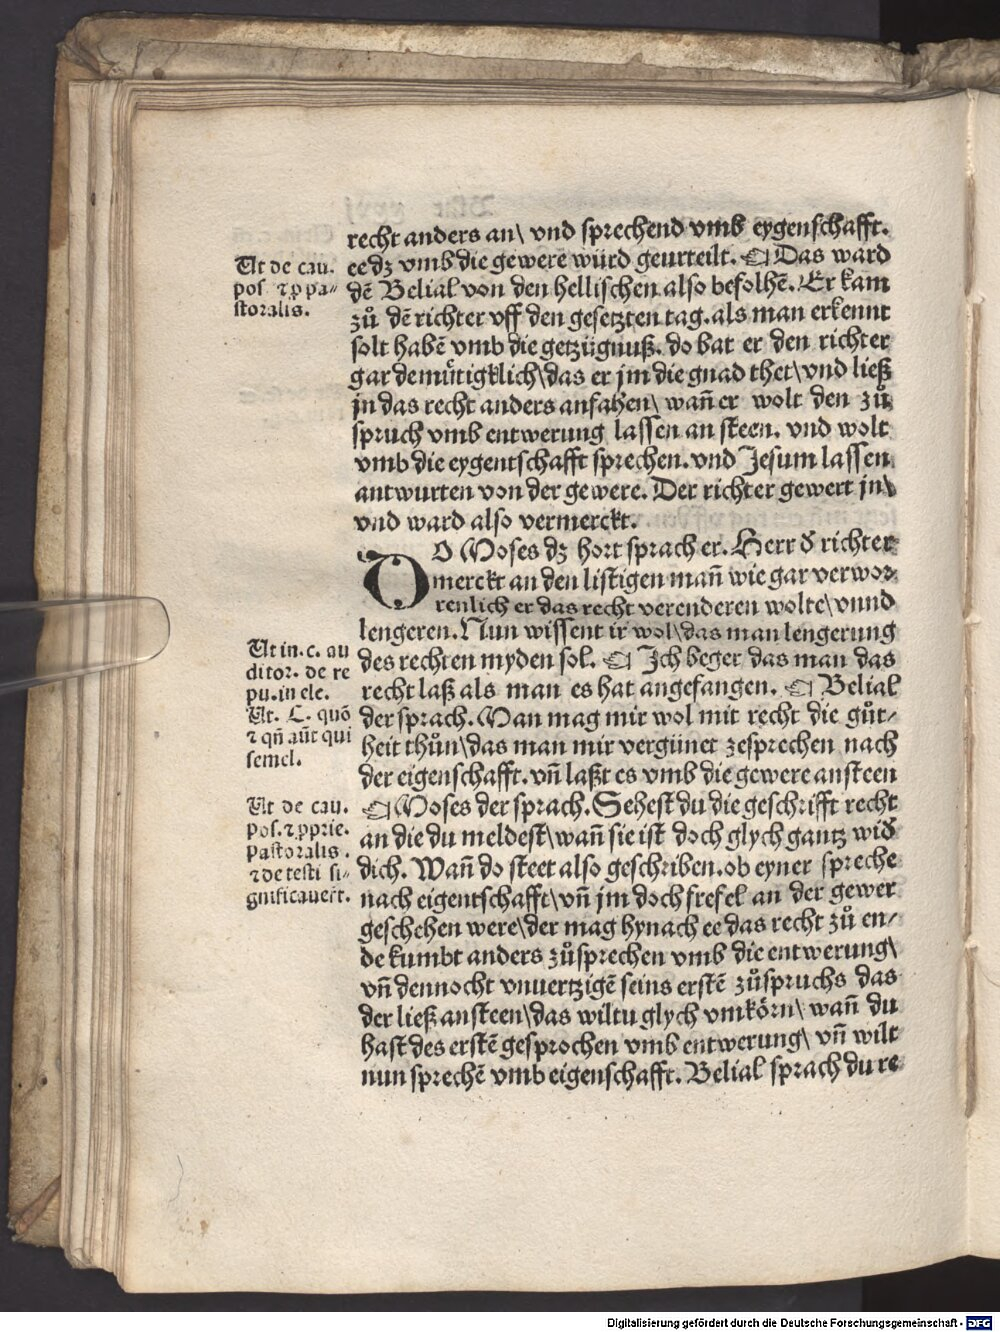 recht anders an\ vnd sprechend vmb eygenschafft.
ee dz vmb die gewere würd geurteilt. ⁌ Das ward
dē Belial von den hellischen also befolhē. Er kam
zů dē richter vff den gesetzten tag. als man erkennt
solt habē vmb die getzügnuß. do bat er den richter
gar demůtigklich\das er jm die gnad thet\vnd ließ
jn das recht anders anfahen\ wañ er wolt den zů
spruch vmb entwerung lassen an steen. vnd wolt
vmb die eygentschafft sprechen. vnd Jesum lassen
antwurten von der gewere. Der richter gewert jn\
vnd ward also vermerckt.
DO Moses dz hort sprach er. Herr ð richter
merckt an den listigen mañ wie gar verwor-
renlich er das recht verenderen wolte\vnnd
lengeren. Nun wissent ir wol\das man lengerung
des rechten myden sol. ⁌ Jch beger das man das
recht laß als man es hat angefangen. ⁌ Belial
der sprach. Man mag mir wol mit recht die gůt-
heit thůn\das man mir vergünet zesprechen nach
der eigenschafft. vñ laßt es vmb die gewere ansteen
⁌ Moses der sprach. Sehest du die geschrifft recht
an die du meldest\wañ sie ist doch glych gantz wið
dich. Wañ do steet also geschriben. ob eyner spreche
nach eigentschafft\vñ jm doch frefel an der gewer
geschehen were\der mag hynach ee das recht zů en-
de kumbt anders zůsprechen vmb die entwerung\
vñ dennocht vnuertzigē seins erstē zůspruchs das
der ließ ansteen\das wiltu glych vmkörn\ wañ du
hast des erstē gesprochen vmb entwerung\ vñ wilt
nun sprechē vmb eigenschafft. Belial sprach du re
Ut de cau.
pos. ⁊ ꝓ pa-
storalis.
Ut in. c. au
ditor. de re
pu. in ele.
Ut. C. quō
⁊ qñ aūt qui
semel.
Ut de cau.
pos. ⁊ ꝓprie.
pastoralis.
⁊ de testi si-
gnificauert.
Digitalisierung gefördert durch die Deutsche Forschungsgemeinschaft - DFG